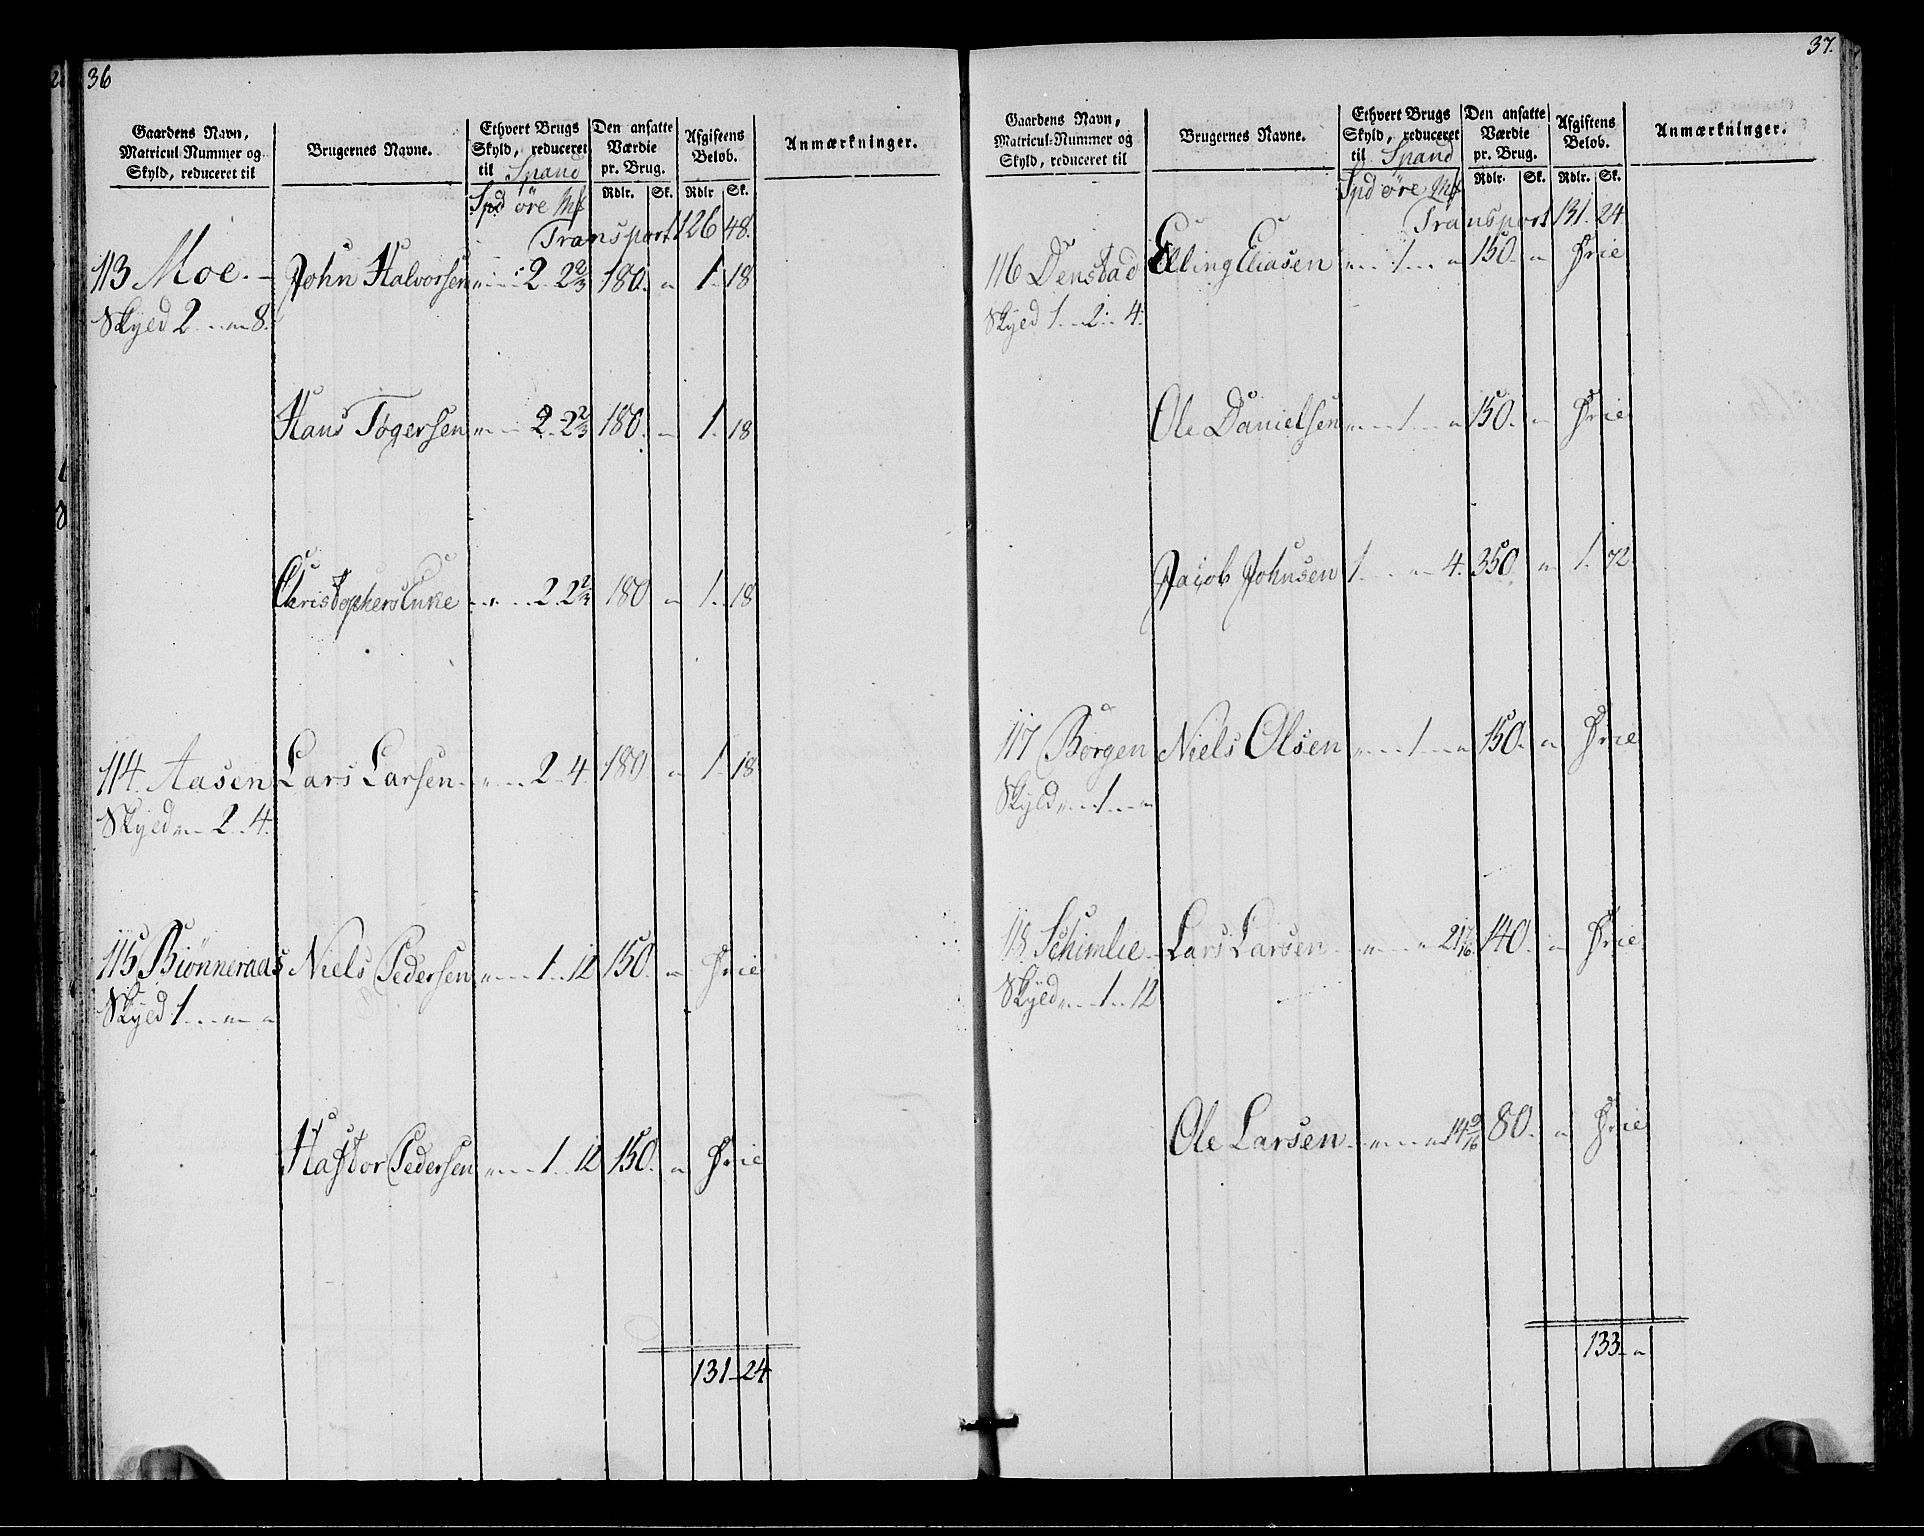 36
Gaardens Navn,
Matricul-Nummer og
Skyld, reduceret til
Brugernes Navne.
Ethvert Brugs
Skyld, reduceret
til Spand
Spd öre Mk
Den ansatte
Værdie
pr. Brug.
Rdlr. Sk.
Afgiftens
Beløb.
Rdlr Sk.
Anmærkninger.
Transport 126 48.
113 Moe. John Halvorsen " 2 2 2/3 180. " 1. 18
Skyld 2 " 8.
Hans Togersen " 2 2 2/3 180. " 1. 18
Christophers Enke " 2. 2 2/3 180 " 1. 18
114. Aasen Lars Larsen " 2. 4. 180 " 1. 18
Skyld " 2. 4.
115 Biønneraas Niels Pedersen " 1. 12 150. " Frie
Skyld 1. " "
Hastor Pedersen " 1. 12 150. " Frie
131 24
37.
Gaardens Navn,
Matricul-Nummer og
Skyld, reduceret til
Brugernes Navne.
Ethvert Brugs
Skyld, reduceret
til Spand
Spd öre Mk
Den ansatte
Værdie
pr. Brug.
Rdlr. Sk.
Afgiftens
Beløb.
Rdlr. Sk.
Anmærkninger.
Transport 131. 24
116 Denstad Elling Eliasen " 1. " 150. " Frie
Skyld 1. 2. 4.
Ole Danielsen " 1. " 150. " Frie
Jacob Johnsen 1. " 4. 350. " 1. 72
117 Borgen Niels Olsen " 1. " 150. " Frie
Skyld " 1. "
118. Schimlie Lars Larsen " " 21 7/16 140. " Frie
Skyld " 1. 12
Ole Larsen " " 14 9/16 80. " Frie
133. "